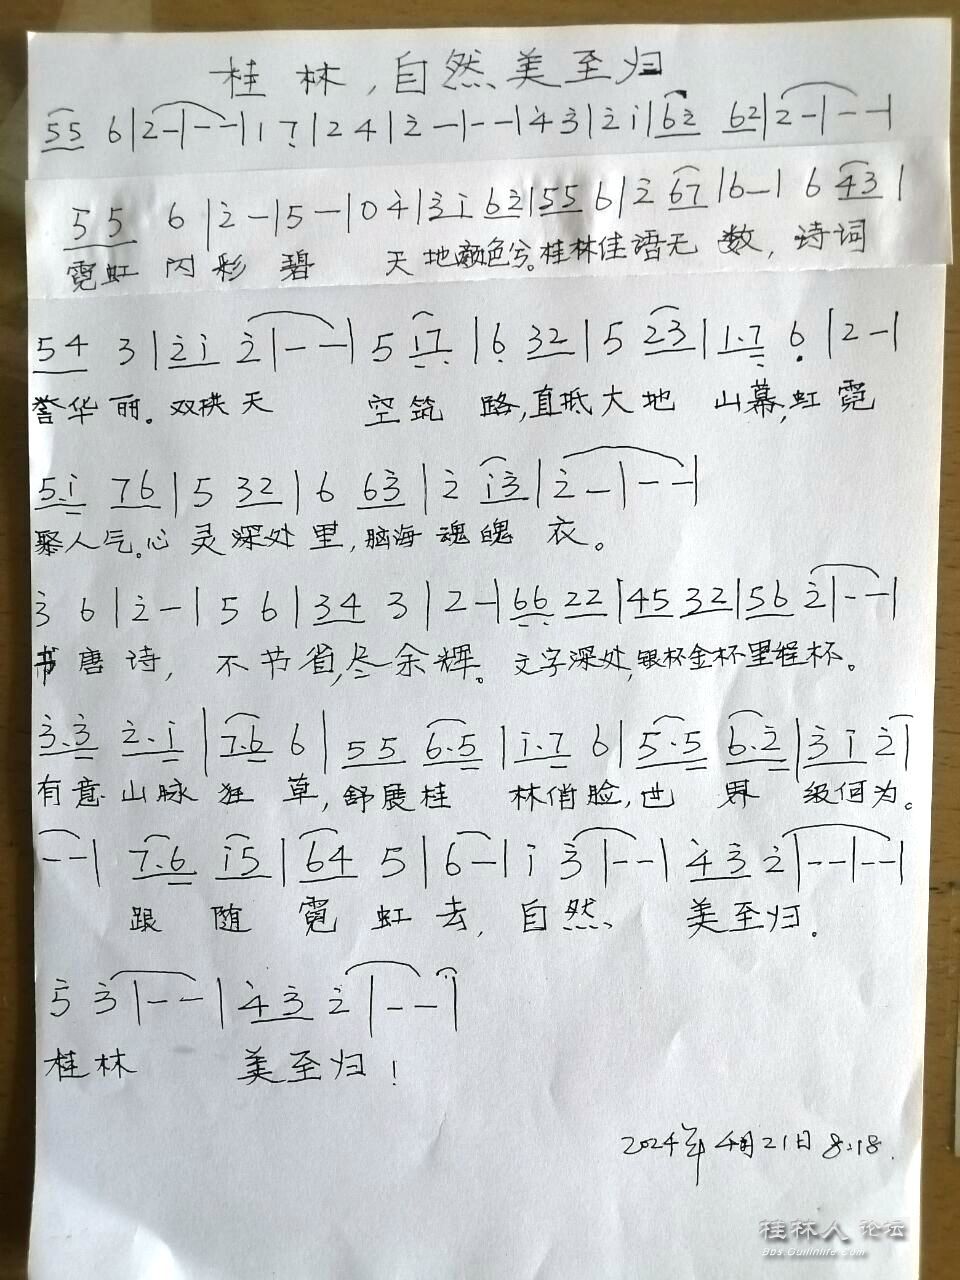 桂林,自然美至归
55 6|2-|--|1 7|2 4|2-|--|43|2i|62 62|2-|--|
55 6|2-|5-|0 4|3i 62|55 6|2 67|6-|6 43|
霓虹 闪彩碧 天地颜色兮。桂林佳语无数,诗词
54 3|2i 2|--|5 i7|6 32|5 23|1.7 6|2-|
誉华丽。双拱天 空筑路,直抵大地 山幕,虹霓
5.i 76|5 32|6 63|2 i3|2-|--|
聚人气。心灵深处里,脑海魂魄衣。
3 6|2-|5 6|34 3|2-|66 22|45 32|56 2|--|
书唐诗, 不节省,尽余辉。文字深处,银杯金杯里程杯。
3.3 2.i|7.6 6|55 6.5|i.7 6|5.5 6.2|3i 2|
有意山脉狂草,舒展桂 林俏脸,世 界 级何为。
--|7.6 i5|64 5|6-|i 3|--|43 2|--|--|
跟随霓虹去,自然 美至归。
5 3|--|43 2|--|
桂林 美至归!
2024年4月21日 8:18.
桂林人论坛
Bbs.Guilinlife.Com